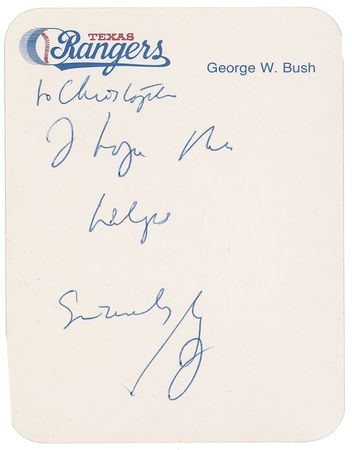 TEXAS
Rangers
George W. Bush
to Christopher
I hope this
helps
Sincerely